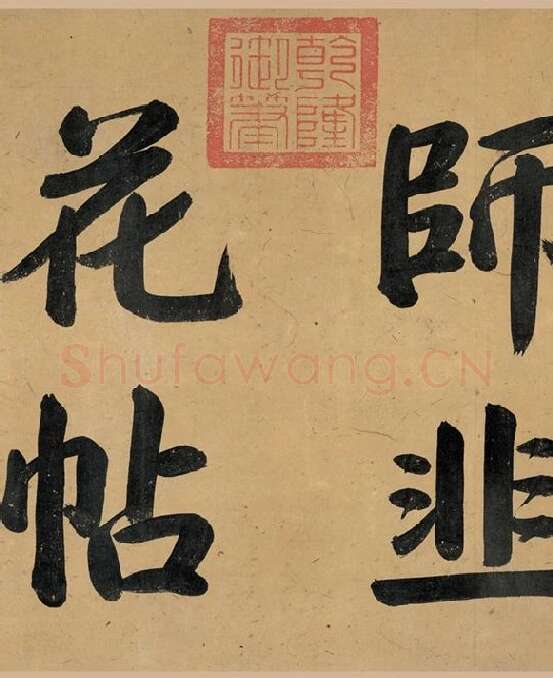 乾隆
御筆
師韭
花帖
Shufawang.CN